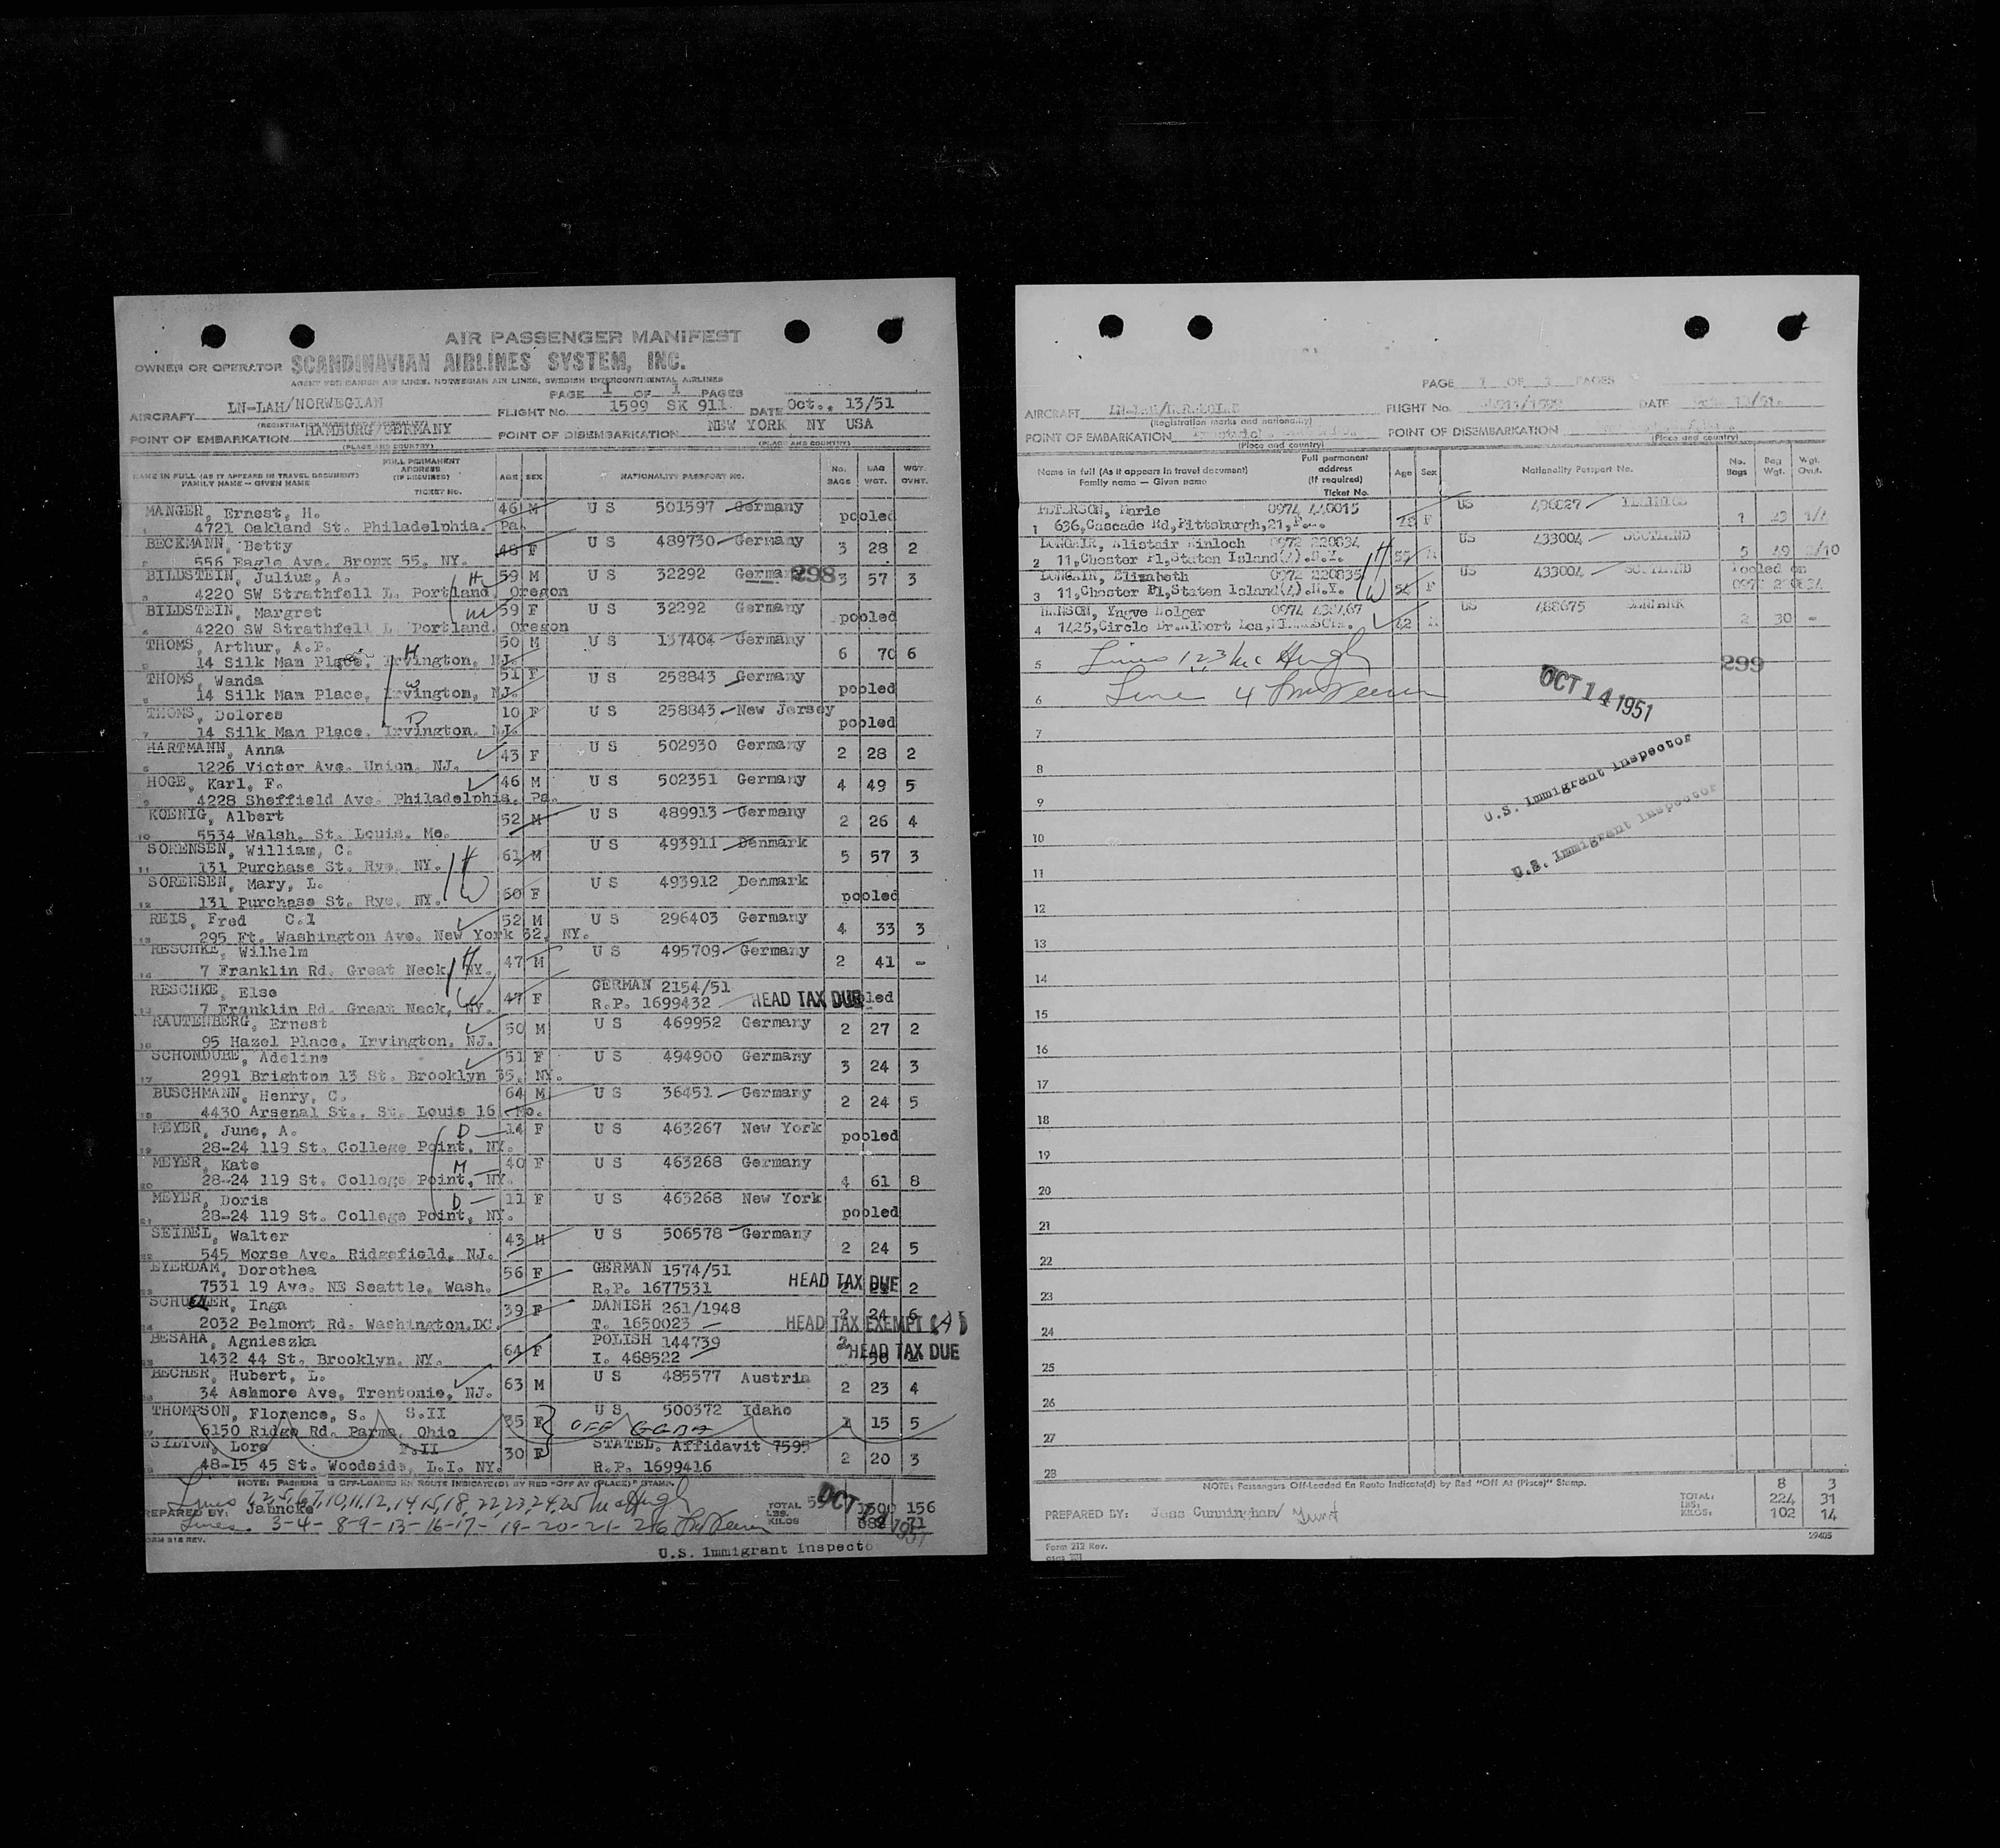 AIR PASSENGER MANIFEST
OWNER OR OPERATOR SCANDINAVIAN AIRLINES SYSTEM, INC.
AGENT FOR DANISH AIR LINES, NORWEGIAN AIR LINES, SWEDISH INTERCONTINENTAL AIRLINES
PAGE 1 OF 1 PAGES
AIRCRAFT LN-LAH/NORWEGIAN FLIGHT No. 1599 SK 911 DATE Oct., 13/51
(REGISTRATION MARKS AND NATIONALITY)
POINT OF EMBARKATION HAMBURG/GERMANY POINT OF DISEMBARKATION NEW YORK NY USA
(PLACE AND COUNTRY) (PLACE AND COUNTRY)
NAME IN FULL (AS IT APPEARS IN TRAVEL DOCUMENT) FAMILY NAME — GIVEN NAME FULL PERMANENT ADDRESS (IF REQUIRED) TICKET No. AGE SEX NATIONALITY PASSPORT NO. No. BAGS BAG WGT. WGT. OVHT.
MANGER, Ernest, H. 46 M U S 501597 Germany pooled
1 4721 Oakland St. Philadelphia. Pa.
BECKMANN, Betty 48 F U S 489730 Germany 3 28 2
556 Eagle Ave. Bronx 55. NY.
BILDSTEIN, Julius, A. H 59 M U S 32292 Germa 298 3 57 3
4220 SW Strathfell L. Portland, Oregon
BILDSTEIN, Margret W 59 F U S 32292 Germany pooled
4220 SW Strathfell L. Portland, Oregon
THOMS, Arthur, A.P. H 50 M U S 137404 Germany 6 70 6
14 Silk Man Place, Irvington, NJ.
THOMS, Wanda W 51 F U S 258843 Germany pooled
14 Silk Man Place, Irvington, NJ.
THOMS, Dolores D 10 F U S 258843 New Jersey pooled
14 Silk Man Place. Irvington. NJ.
HARTMANN, Anna 43 F U S 502930 Germany 2 28 2
1226 Victor Ave. Union. NJ.
HOGE, Karl, F. 46 M U S 502351 Germany 4 49 5
4228 Sheffield Ave. Philadelphia. Pa.
KOENIG, Albert 52 M U S 489913 Germany 2 26 4
10 5534 Walsh. St. Louis. Mo.
SORENSEN, William, C. H 61 M U S 493911 Denmark 5 57 3
11 131 Purchase St. Rye. NY.
SORENSEN, Mary, L. W 60 F U S 493912 Denmark pooled
12 131 Purchase St. Rye. NY.
REIS, Fred C.l 52 M U S 296403 Germany 4 33 3
13 295 Ft. Washington Ave. New York 32, NY.
RESCHKE, Wilhelm H 47 M U S 495709 Germany 2 41 -
14 7 Franklin Rd. Great Neck, NY.
RESCHKE, Else W 47 F GERMAN 2154/51
15 7 Franklin Rd. Great Neck, NY. R.P. 1699432 HEAD TAX DUE led
RAUTENBERG, Ernest 50 M U S 469952 Germany 2 27 2
16 95 Hazel Place, Irvington, NJ.
SCHONDUBE, Adeline 51 F U S 494900 Germany 3 24 3
17 2991 Brighton 13 St. Brooklyn 35, NY.
BUSCHMANN, Henry, C. 64 M U S 36451 Germany 2 24 5
18 4430 Arsenal St., St. Louis 16 Mo.
MEYER, June, A. D 14 F U S 463267 New York pooled
19 28-24 119 St. College Point, NY.
MEYER, Kate M 40 F U S 463268 Germany 4 61 8
20 28-24 119 St. College Point, NY.
MEYER, Doris D 11 F U S 463268 New York pooled
21 28-24 119 St. College Point, NY.
SEIDEL, Walter 43 M U S 506578 Germany 2 24 5
22 545 Morse Ave. Ridgefield, NJ.
EYERDAM, Dorothea 56 F GERMAN 1574/51
23 7531 19 Ave. NE Seattle, Wash. R.P. 1677531 HEAD TAX DUE 2
Inga 39 F DANISH 261/1948 2 24 6
2032 Belmont Rd. Washington.DC. T. 1650023 HEAD TAX EXEMPT (A)
BESAHA, Agnieszka 64 F POLISH 144739 2
25 1432 44 St. Brooklyn. NY. I. 468522 HEAD TAX DUE
BECHER, Hubert, L. 63 M U S 485577 Austria 2 23 4
34 Ashmore Ave, Trentonie, NJ.
THOMPSON, Florence, S. S.II 35 F U S 500372 Idaho 1 15 5
6150 Ridge Rd. Parma, Ohio OFF
SYLTON, Lore F.II 30 F STATEL. Affidavit 7595 2 20 3
48-15 45 St. Woodside, L.I. NY. R.P. 1699416
NOTE: PASSENG S OFF-LOADED EN ROUTE INDICATE(D) BY RED "OFF AT (PLACE)" STAMP.
Lines 1,2,5,6,7,10,11,12,14,15,18,22,23,24,25 McHugh
PREPARED BY: Jahncke TOTAL LBS. KILOS 1500 156
Lines 3-4-8-9-13-16-17-19-20-21-26 688 71
OCT 1951
FORM 212 REV.
U.S. Immigrant Inspecto
PAGE 1 OF 1 PAGES
AIRCRAFT FLIGHT No. DATE Oct. 13/51.
(Registration marks and nationality)
POINT OF EMBARKATION POINT OF DISEMBARKATION
(Place and country) (Place and country)
Name in full (As it appears in travel document) Family name — Given name Full permanent address (If required) Ticket No. Age Sex Nationality Passport No. No. Bags Bag Wgt. Wgt. Ovwt.
PETERSON, Marie 0974 440015 28 F US 496827 ILLINOIS 1 23 1/4
1 636,Cascade Rd,Pittsburgh,21,
LONGAIR, Alistair Kinloch 0972 220834 H 55 M US 433004 SCOTLAND 5 49 /10
2 11,Chester Pl,Staten Island(4).N.Y.
LONGAIR, Elizabeth 0972 220835 W 54 F US 433004 SCOTLAND Pooled on
3 11,Chester Pl,Staten Island(4).N.Y. 0972 220834
HANSON, Yngve Holger 0974 438467 42 M US 488675 DENMARK 2 30 -
4 1425,Circle Dr.Albert Lea,
5 Lines 1,2,3 McHugh 299
6 Line 4
OCT 14 1951
7
8
U.S. Immigrant Inspector
9
10
U.S. Immigrant Inspector
11
12
13
14
15
16
17
18
19
20
21
22
23
24
25
26
27
28
NOTE: Passengers Off-Loaded En Route Indicate(d) by Red "Off At (Place)" Stamp. 8 3
PREPARED BY: Jess Cunningham/ TOTAL: LBS: 224 31
KILOS: 102 14
29405
Form 212 Rev.